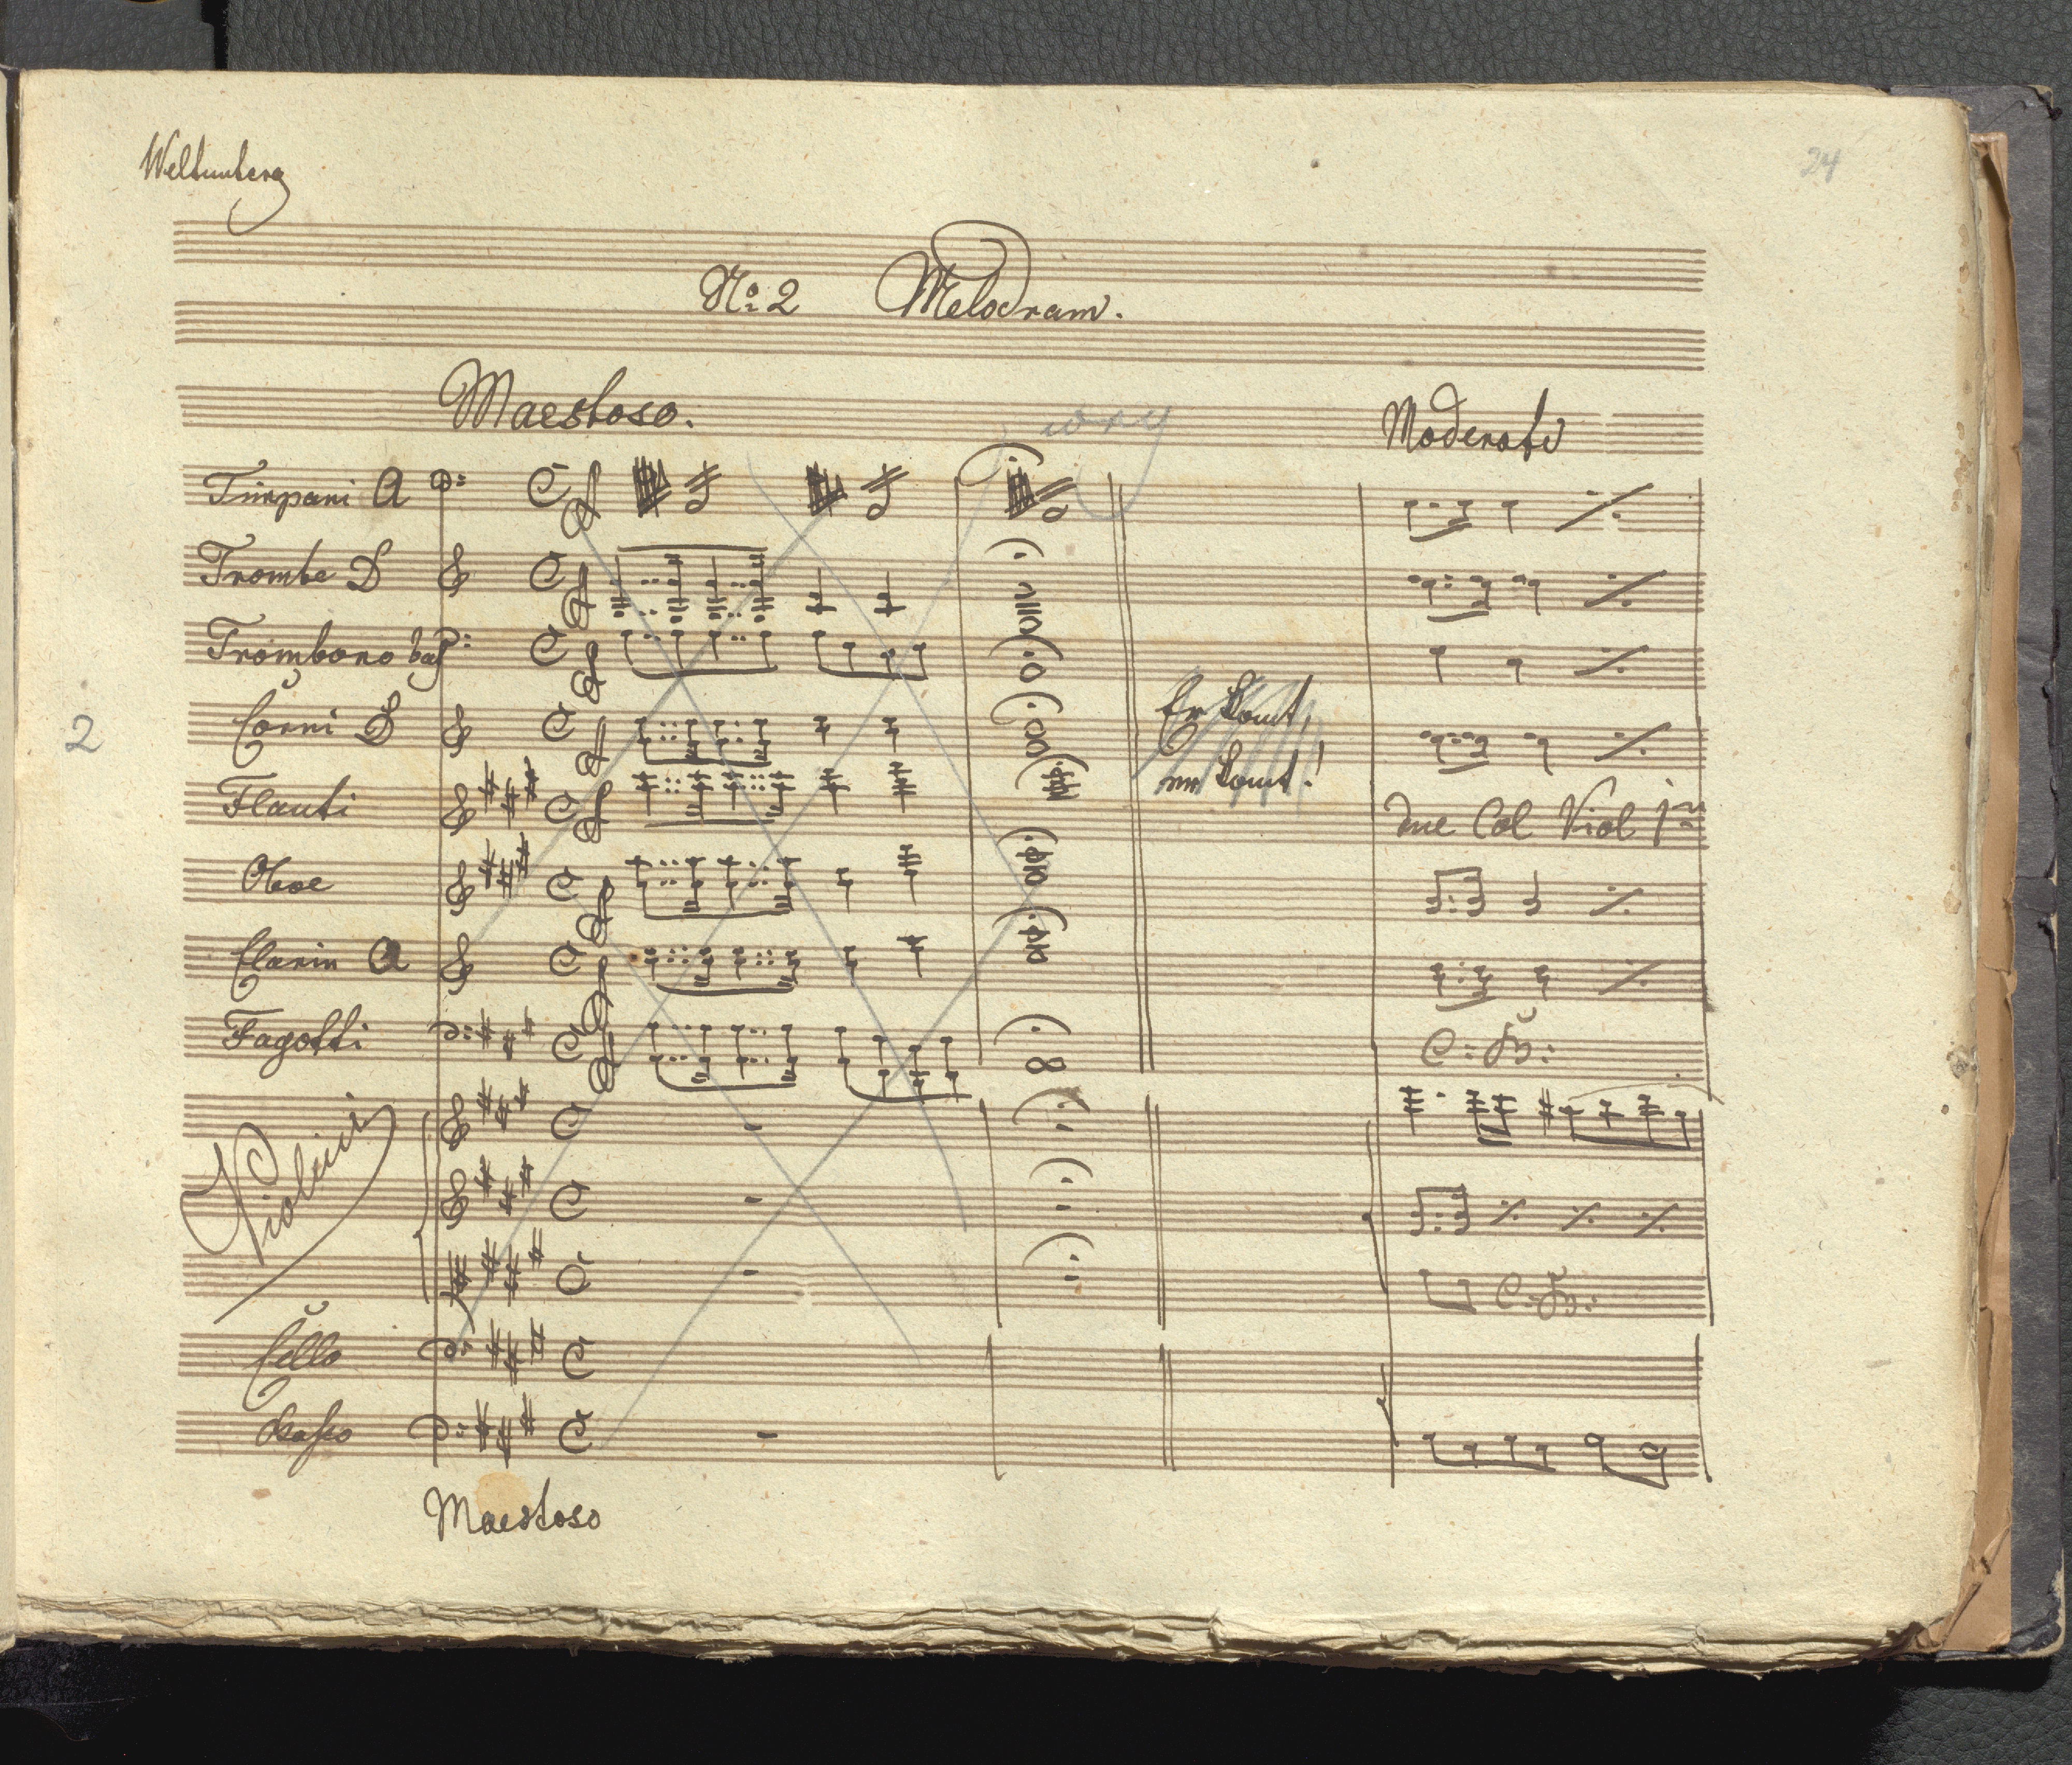 Weltunberg
24
No. 2 Melodram.
Maestoso.
Moderato
Timpani A
Trombe D
Trombono bass
Corni D
Er komt,
er komt!
2
Flauti
Due Col Viol 1mo
Oboe
Clarin A
Fagotti
C: B:
Violini
C: B:
Cello
Basso
Maestoso